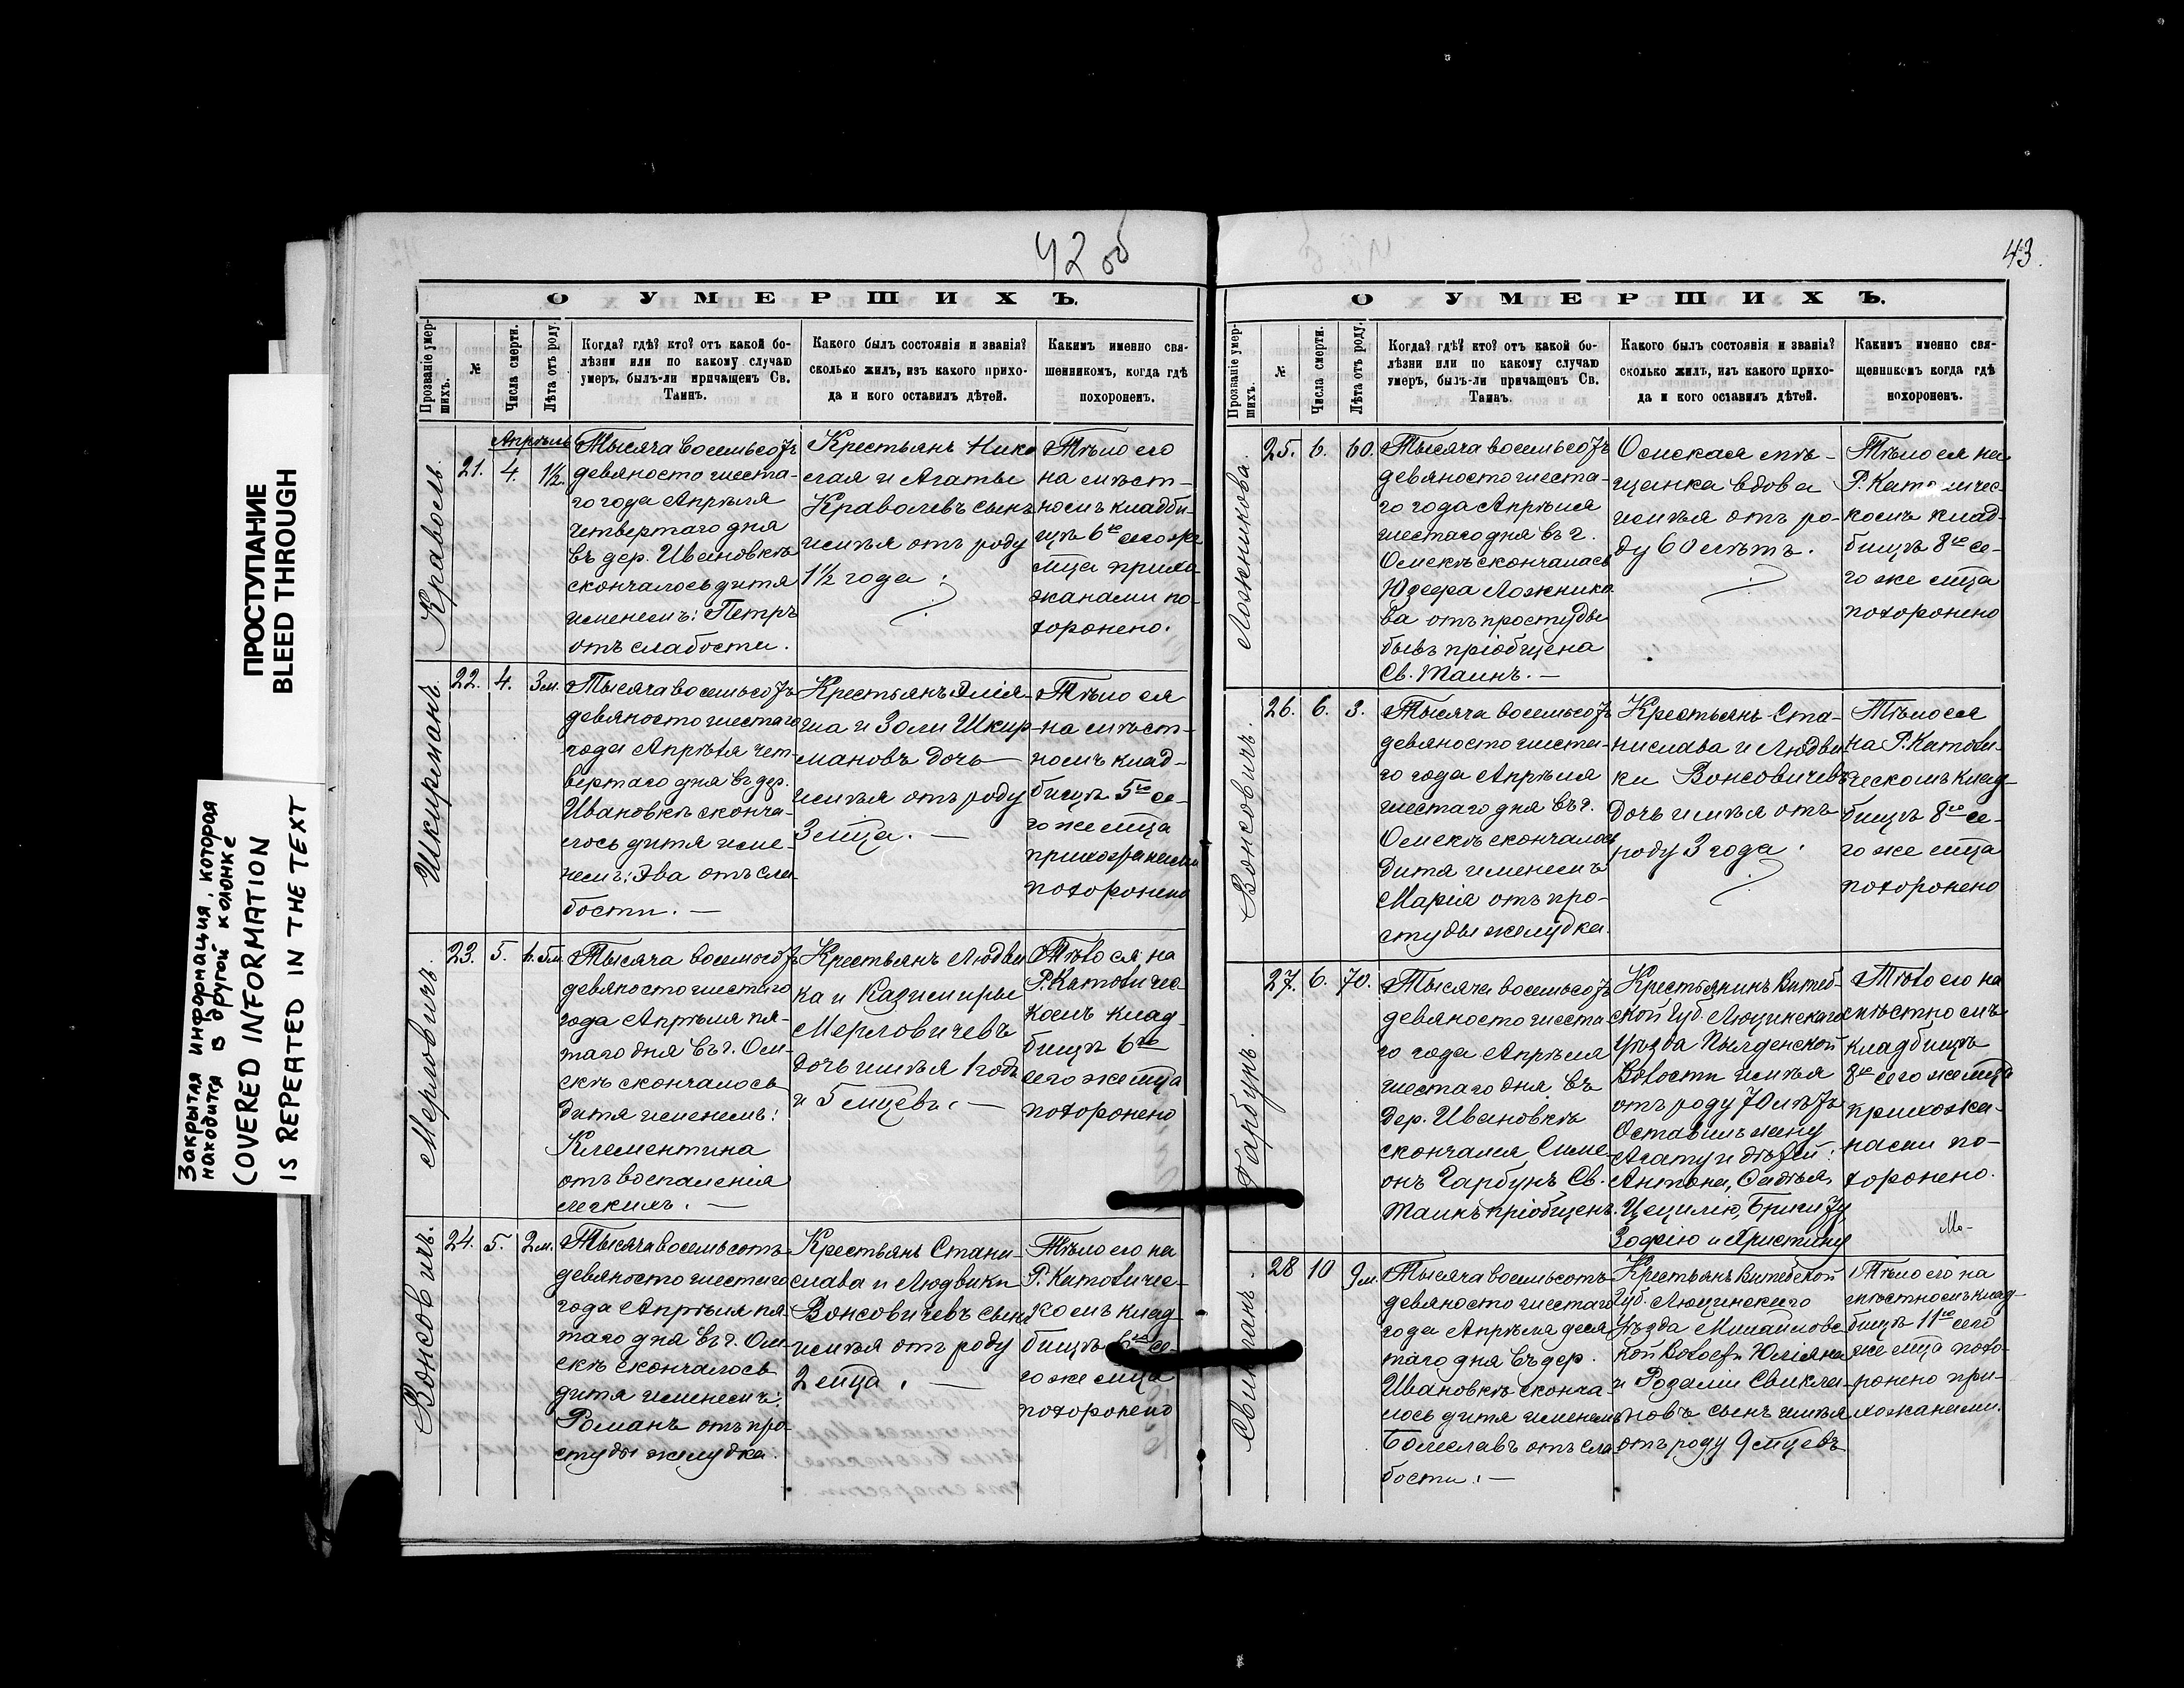 ПРОСТУПАНИЕ
BLEED THROUGH
Закрытая информация, которая
находится в другой колонке
COVERED INFORMATION
IS REPEATED IN THE TEXT
42 об
О УМЕРШИХЪ.
Прозваніе умер-
шихъ.
№
Числа смерти.
Лѣта отъ роду.
Когда? гдѣ? кто? отъ какой бо-
лѣзни или по какому случаю
умеръ, былъ-ли причащенъ Св.
Таинъ.
Какого былъ состоянія и званія?
сколько жилъ, изъ какого прихо-
да и кого оставилъ дѣтей.
Какимъ именно свя-
щенникомъ, когда гдѣ
похороненъ.
Краволь.
21.
Апрѣль
4.
1½.
Тысяча восемьсотъ
девяносто шеста-
го года Апрѣля
четвертаго дня
въ дер. Ивановкѣ
скончалось дитя
именемъ: Петръ
отъ слабости.
Крестьянъ Нико
лая и Агаты
Краволевъ сынъ
имѣя отъ роду
1½ года.
Тѣло его
на мѣст-
номъ кладби-
щѣ 6го сего же
мца прихо
жанами по-
хоронено.
Шкирманъ.
22.
4.
3 м.
Тысяча восемьсотъ
девяносто шестаго
года Апрѣля чет-
вертаго дня въ дер.
Ивановкѣ сконча-
лось дитя име-
немъ: Эва отъ сла-
бости. —
Крестьянъ
и Шкир-
мановъ дочь
имѣя отъ роду
3 мца. —
Тѣло ея
на мѣст-
номъ клад-
бищѣ 5го се-
го же мца
прихожанами
похоронено
Мерловичъ.
23.
5.
1. 5 м.
Тысяча восемьсотъ
девяносто шестаго
года Апрѣля пя-
таго дня въ г. Ом-
скѣ скончалось
дитя именемъ:
Клементина
отъ воспаленія
легкихъ. —
Крестьянъ Людви
ка и Казимиры
Мерловичевъ
дочь имѣя 1 годъ
и 5 мцевъ. —
Тѣло ея на
Р. Католичес-
комъ клад-
бищѣ 6го
сего же мца
похоронено
Вонсовичъ.
24.
5.
2 м.
Тысяча восемьсотъ
девяносто шестаго
года Апрѣля пя-
таго дня въ г. Ом-
скѣ скончалось
дитя именемъ:
Романъ отъ про-
студы желудка.
Крестьянъ Стани-
слава и Людвики
Вонсовичевъ сынъ
имѣя отъ роду
2 мца. —
Тѣло его на
Р. Католичес-
комъ клад-
бищѣ 6го се-
го же мца
похоронено
43.
О УМЕРШИХЪ.
Прозваніе умер-
шихъ.
№
Числа смерти.
Лѣта отъ роду.
Когда? гдѣ? кто? отъ какой бо-
лѣзни или по какому случаю
умеръ, былъ-ли причащенъ Св.
Таинъ.
Какого былъ состоянія и званія?
сколько жилъ, изъ какого прихо-
да и кого оставилъ дѣтей.
Какимъ именно свя-
щенникомъ когда гдѣ
похороненъ.
Ложникова.
25.
6.
60.
Тысяча восемьсотъ
девяносто шеста-
го года Апрѣля
шестаго дня въ г.
Омскѣ скончалась
Юзефа Ложнико
ва отъ простуды
бывъ пріобщена
Св. Таинъ. —
Омская мѣ-
щанка вдова
имѣя отъ ро-
ду 60 лѣтъ.
Тѣло ея на
Р. Католичес-
комъ клад-
бищѣ 8го се-
го же мца
похоронено
Вонсовичъ.
26.
6.
3.
Тысяча восемьсотъ
девяносто шеста-
го года Апрѣля
шестаго дня въ г.
Омскѣ скончалось
дитя именемъ
Марія отъ про-
студы желудка.
Крестьянъ Ста-
нислава и Людви-
ки Вонсовичевъ
дочь имѣя отъ
роду 3 года.
Тѣло ея
на Р. Католи-
ческомъ клад-
бищѣ 8го се-
го же мца
похоронено
Гарбунъ.
27.
6.
70.
Тысяча восемьсотъ
девяносто шеста-
го года Апрѣля
шестаго дня въ
дер. Ивановкѣ
скончался Симе-
онъ Гарбунъ Св.
Таинъ пріобщенъ.
Крестьянинъ Витеб-
ской Губ. Люцинскаго
уѣзда Пылденской
Волости имѣя
отъ роду 70 лѣтъ
Оставилъ жену
Агату и дѣтей:
Антона,
Цецилію, Бригиту
Зофію и Христину
Тѣло его на
мѣстномъ
кладбищѣ
8го сего же мца
прихожа-
нами по-
хоронено.
Свикланъ.
28
10
9 м.
Тысяча восемьсотъ
девяносто шестаго
года Апрѣля деся
таго дня въ дер.
Ивановкѣ сконча-
лось дитя именемъ
Болеславъ отъ сла
бости. —
Крестьянъ Витебской
Губ. Люцинскаго
Уѣзда Михайловс-
кой Волости Юліяна
и Розаліи Свикла-
новъ сынъ имѣя
отъ роду 9 мцевъ
Тѣло его на
мѣстномъ клад-
бищѣ 11го сего
же мца похо-
ронено при-
хожанами.